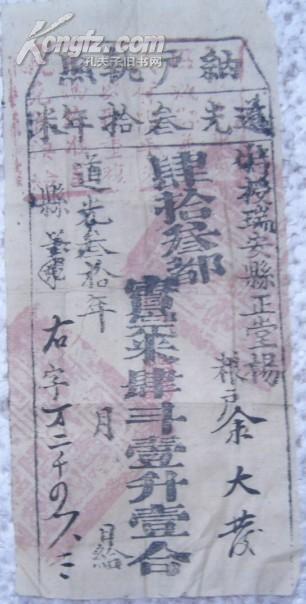 Kongfz.com
孔夫子旧书网
納戶執照
道光叁拾年米
特授瑞安縣正堂楊
糧戶余大發
肆拾叁都
實米肆斗壹升壹合
道光叁拾年 月 日給
縣
右字万二千